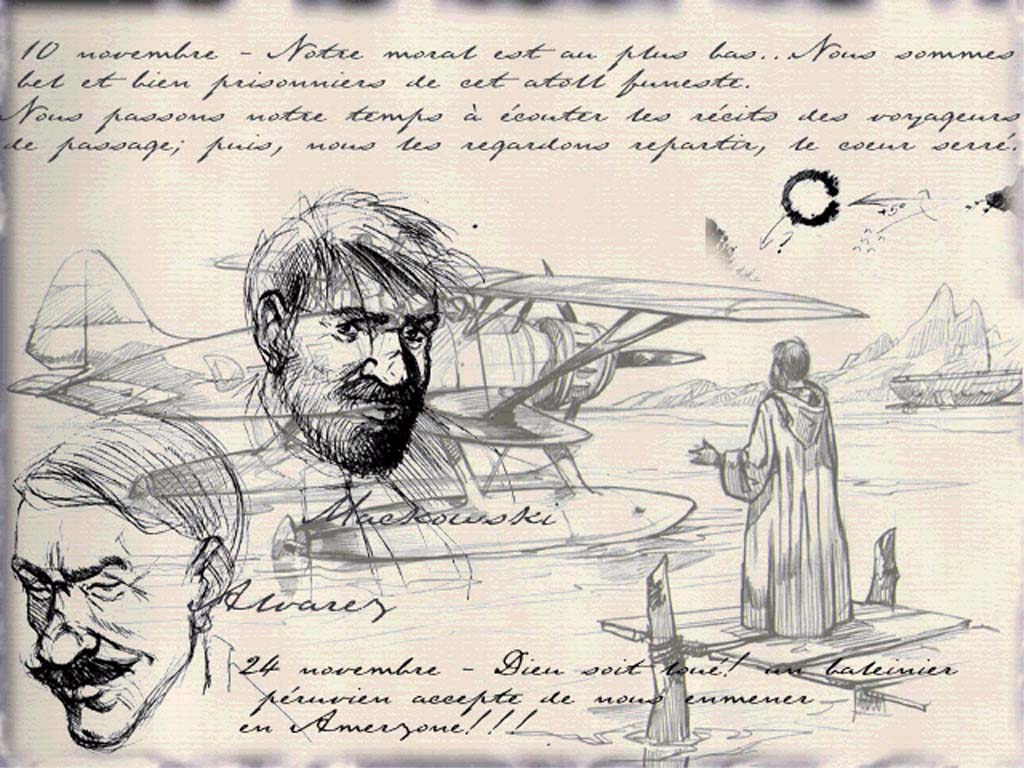 10 novembre - Notre moral est au plus bas... Nous sommes
bel et bien prisonniers de cet atoll funeste.
Nous passons notre temps à écouter les récits des voyageurs
de passage; puis, nous les regardons repartir, le coeur serré.
?
Mackowski
Alvarez
24 novembre - Dieu soit loué! un baleinier
péruvien accepte de nous enmener
en Amerzone!!!